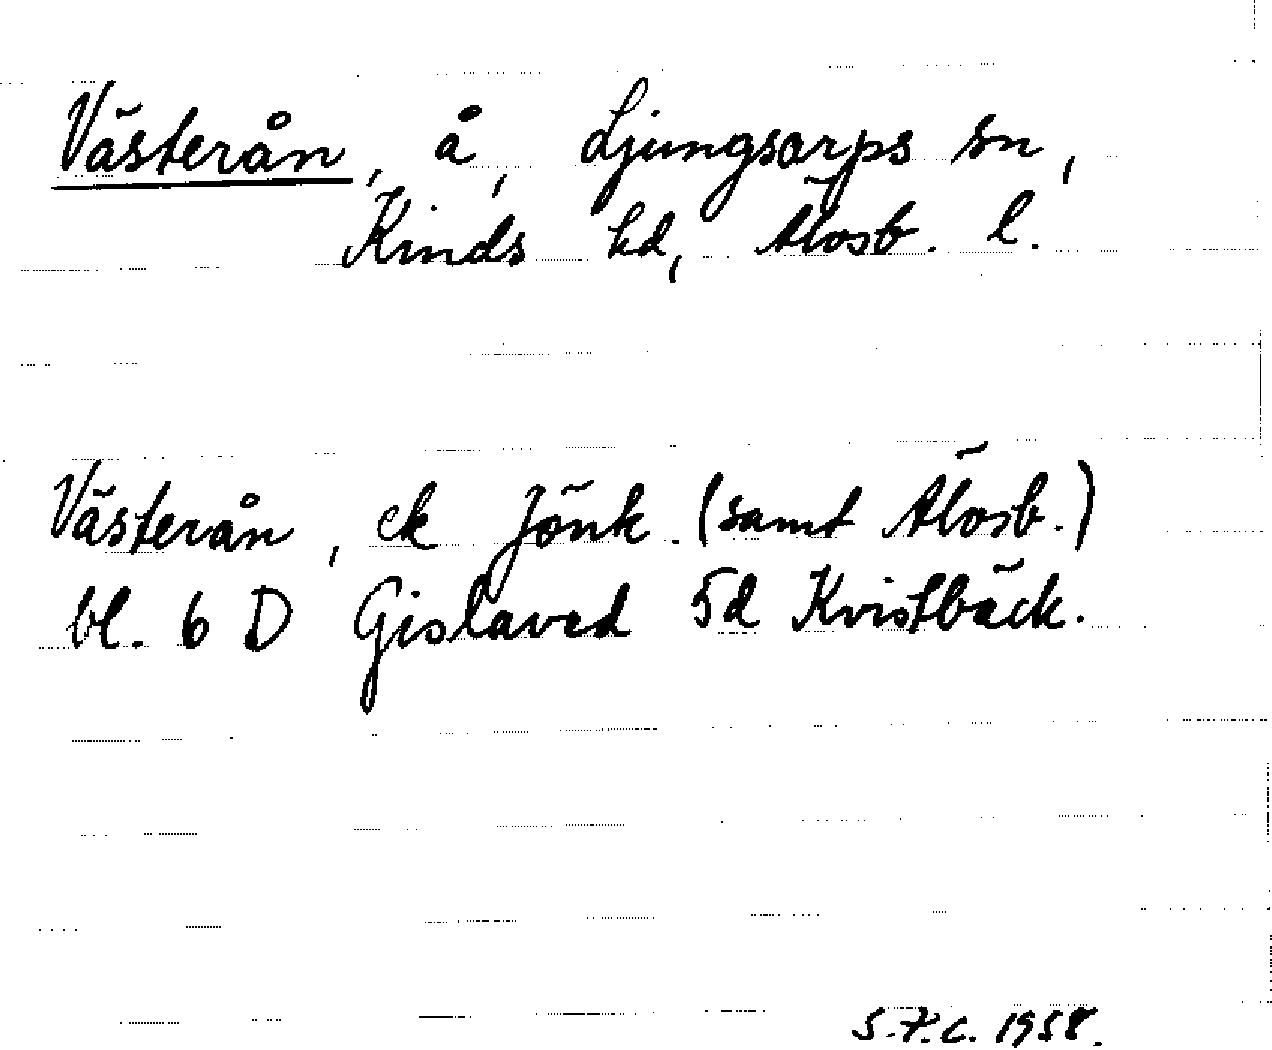 Västerån, å, Ljungsarps sn,
Kinds hd, Älvsb. l.
Västerån, ek Jönk. (samt Älvsb.)
bl. 6 D Gislaved 5d Kvistbäck.
1958.